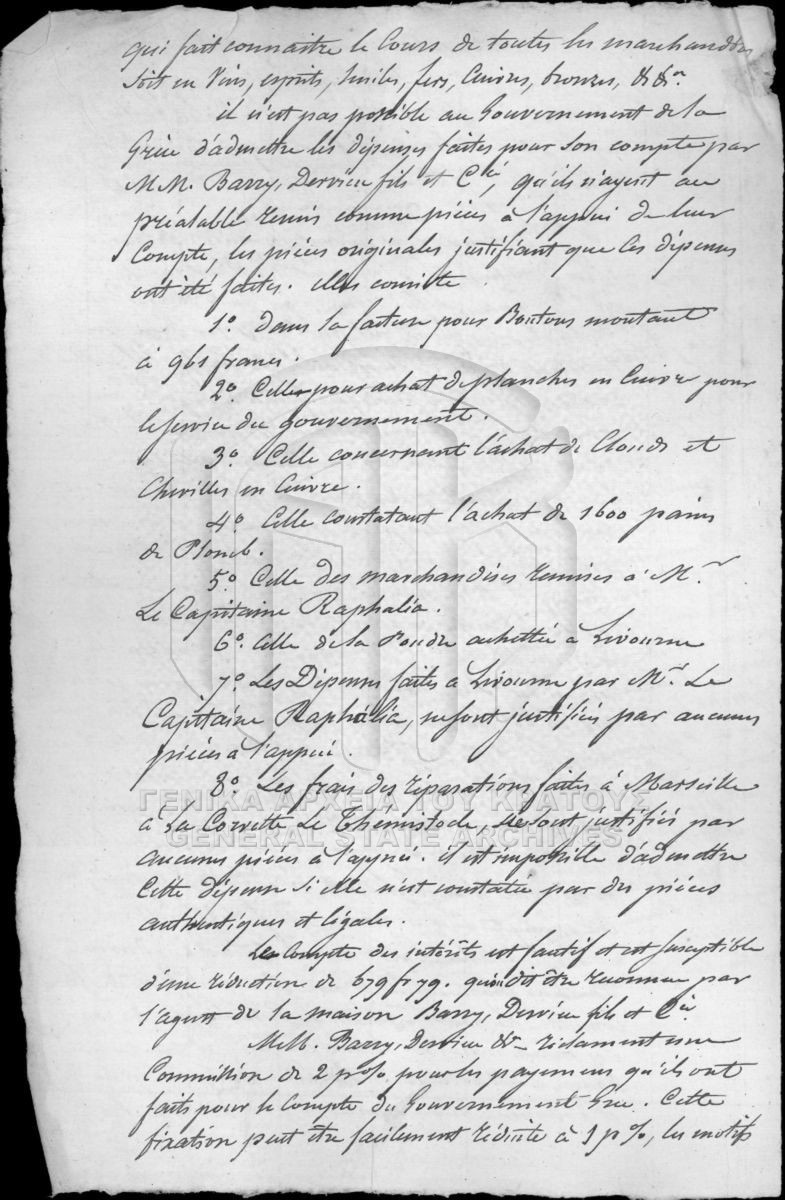 qui fait connaître le Cours de toutes les marchandises
soit en Vins, esprits, huiles, fers, Cuivres, bronzes, &&a
il n'est pas possible au Gouvernement de la
Grèce d'admettre les dépenses faites pour son compte par
MM. Barry, Dervieu fils et Cie, qu'ils n'ayent au
préalable remis comme pièces à l'appui de leur
Compte, les pièces originales justifiant que ces dépenses
ont été faites. Elles consiste
1º. dans la facture pour Boutons montant
à 961 francs.
2º. Celle pour achat de planches en Cuivre pour
le service du gouvernement.
3º. Celle concernant l'achat de Clouds et
Chevilles en Cuivre.
4º. Celle constatant l'achat de 1600 pains
de Plomb.
5º. Celle des marchandises remises à Mr.
Le Capitaine Raphalia.
6º. Celle de la Poudre achettée à Livourne
7º. Les Dépenses faites à Livourne par Mr. Le
Capitaine Raphalia, ne sont justifiées par aucunes
pièces à l'appui.
8º. Les frais des réparations faites à Marseille
à La Corvette Le Thémistocle, ne sont justifiés par
aucunes pièces à l'appui. il est impossible d'admettre
Cette dépense si elle n'est constatée par des pièces
authentiques et légales.
Le Compte des intérêts est fautif et est susceptible
d'une réduction de 679 fr 79. qui doit être reconnue par
l'agent de la maison Barry, Dervieu fils et Cie
MM. Barry, Dervieu &a réclament une
Commission de 2 p% pour les payemens qu'ils ont
faits pour le Compte du Gouvernement Grec. Cette
fixation peut être facilement réduite à 1 p%, les motifs
ΓΕΝΙΚΑ ΑΡΧΕΙΑ ΤΟΥ ΚΡΑΤΟΥΣ
GENERAL STATE ARCHIVES